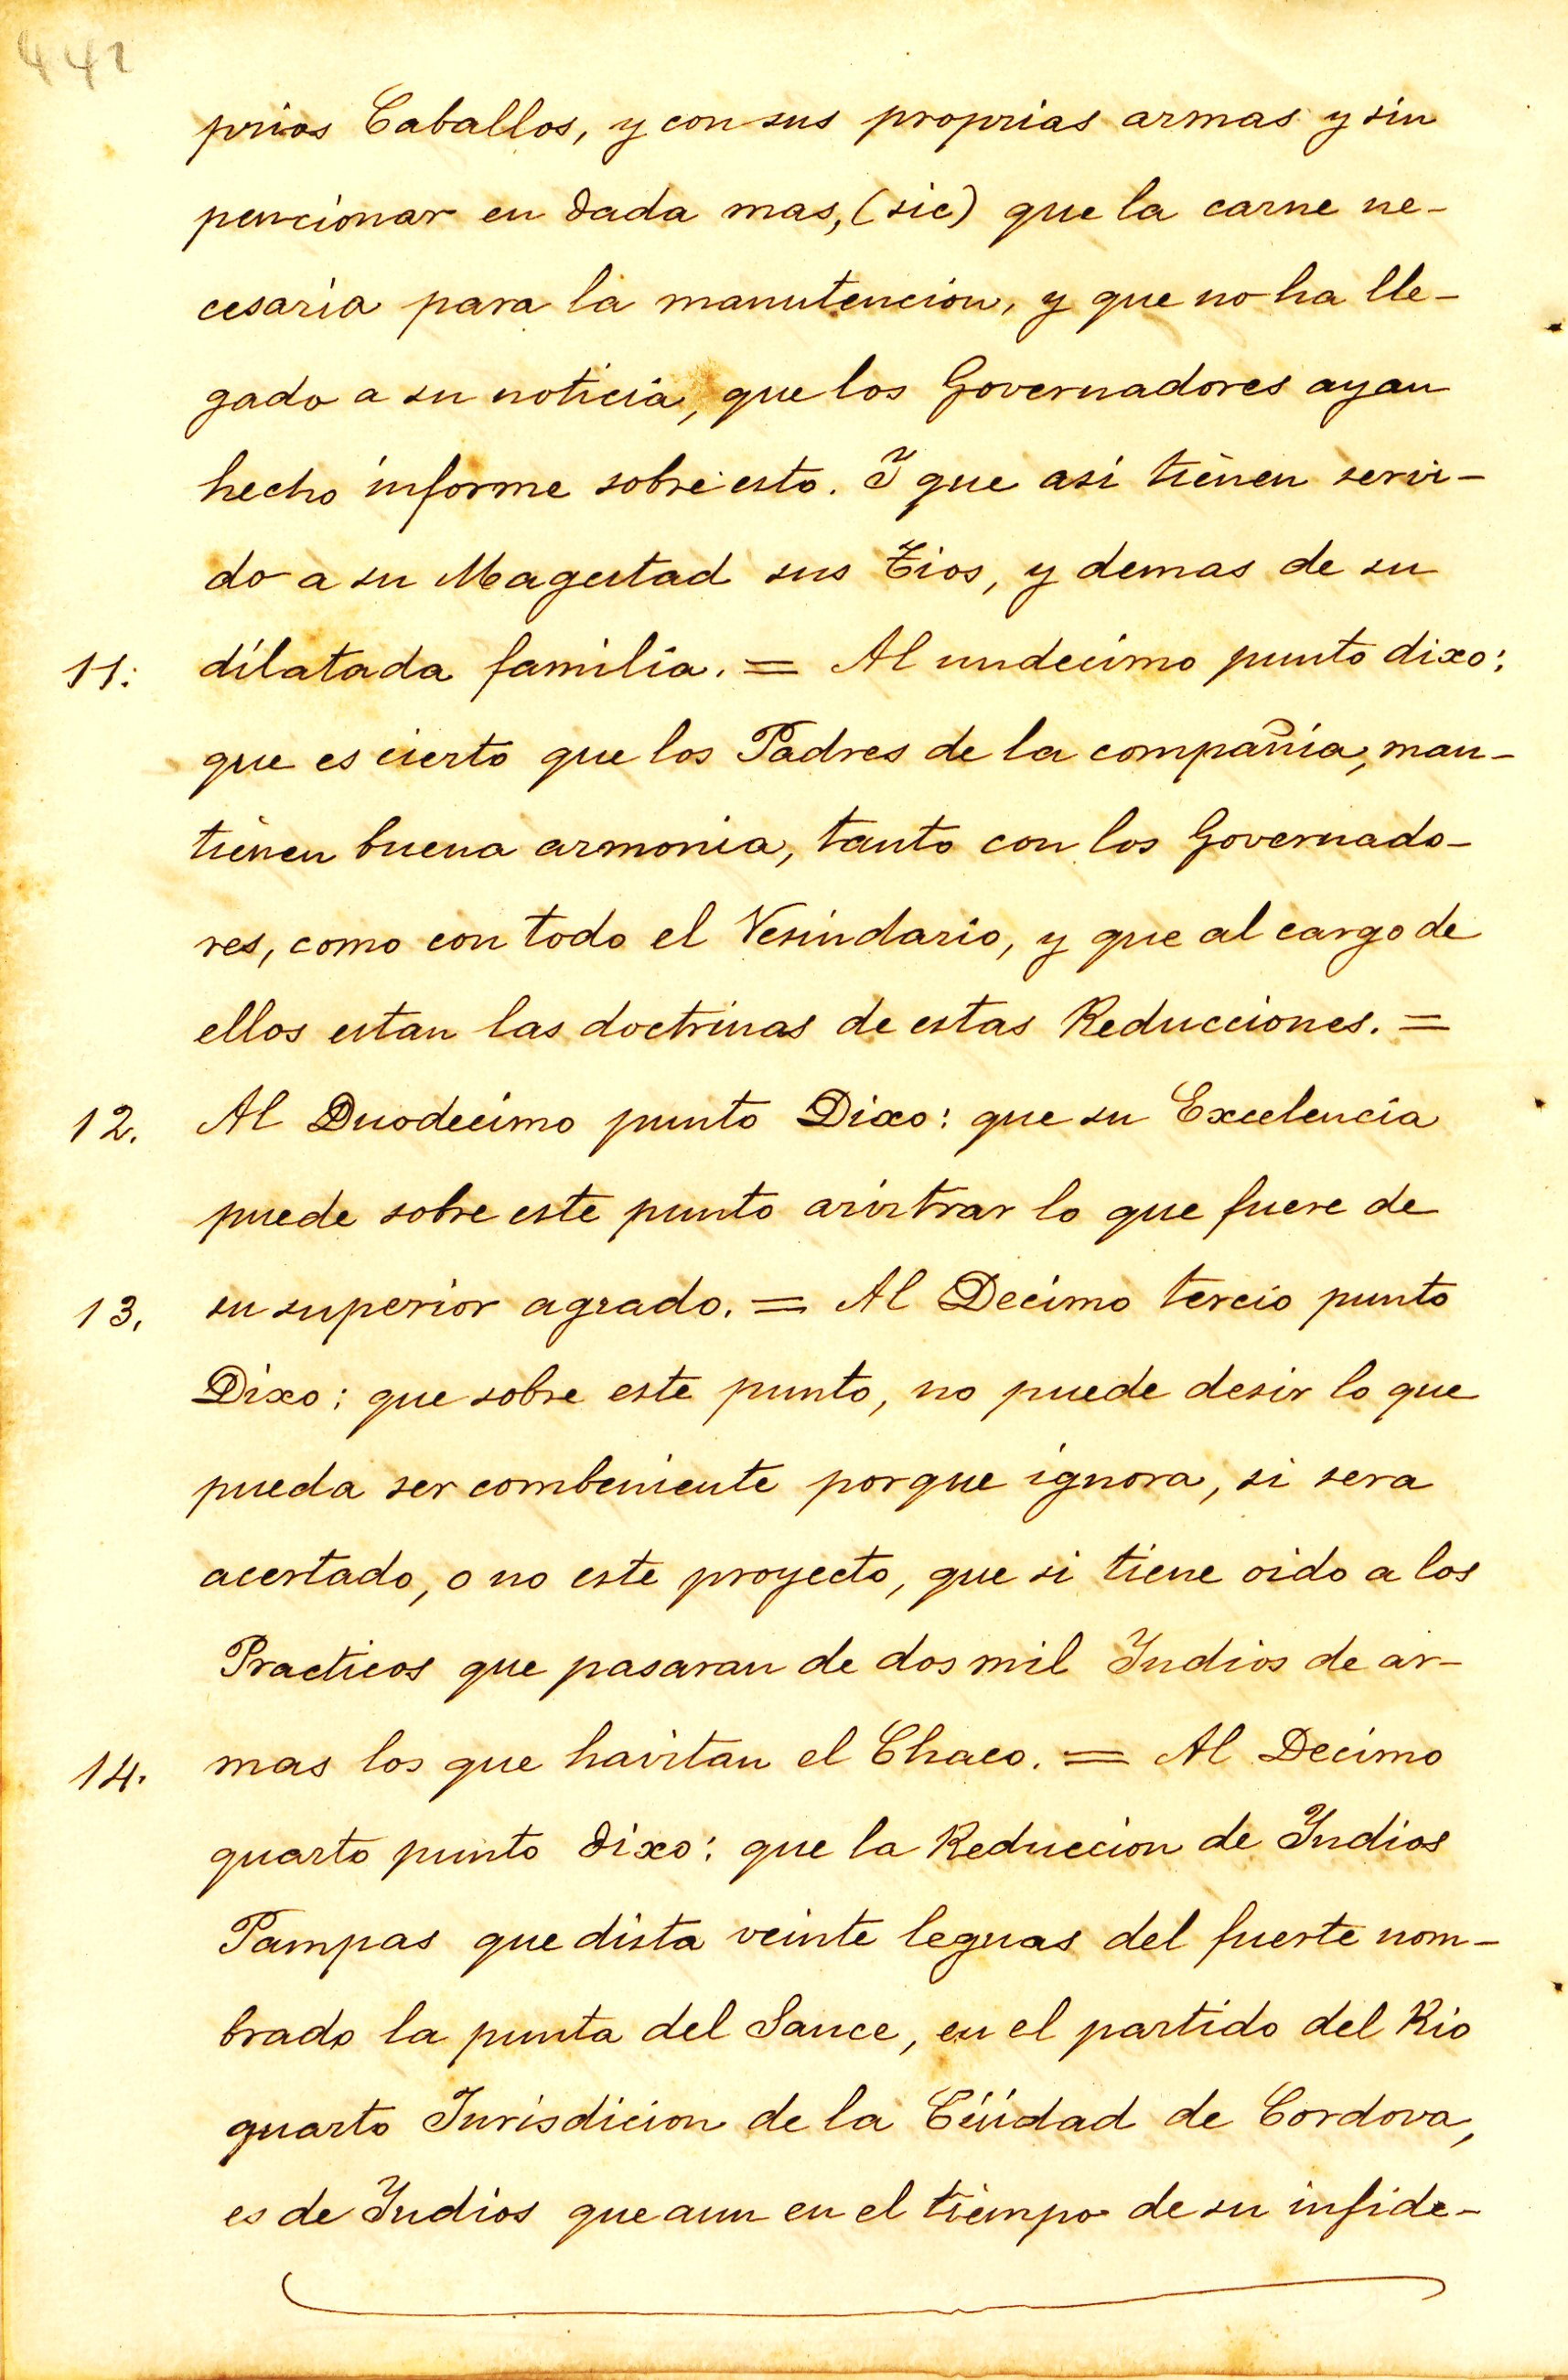 441
prios Caballos, y con sus proprias armas y sin
pencionar en dada mas, (sic) que la carne ne-
cesaria para la manutencion, y que no ha lle-
gado a su noticia, que los Governadores ayan
hecho informe sobre esto. I que asi tienen servi-
do a su Magestad sus Tios, y demas de su
11: dilatada familia. = Al undecimo punto dixo:
que es cierto que los Padres de la compañia, man-
tienen buena armonia, tanto con los Governado-
res, como con todo el Vesindario, y que al cargo de
ellos estan las doctrinas de estas Reducciones. =
12. Al Duodecimo punto Dixo: que su Excelencia
puede sobre este punto arvitrar lo que fuere de
13. su superior agrado. = Al Decimo tercio punto
Dixo: que sobre este punto, no puede desir lo que
pueda ser combeniente porque ignora, si sera
acertado, o no este proyecto, que si tiene oido a los
Practicos que pasaran de dos mil Indios de ar-
14. mas los que havitan el Chaco. = Al Decimo
quarto punto dixo: que la Reduccion de Indios
Pampas que dista veinte leguas del fuerte nom-
brado la punta del Sauce, en el partido del Rio
quarto Jurisdicion de la Ciudad de Cordova,
es de Indios que aun en el tiempo de su infide-